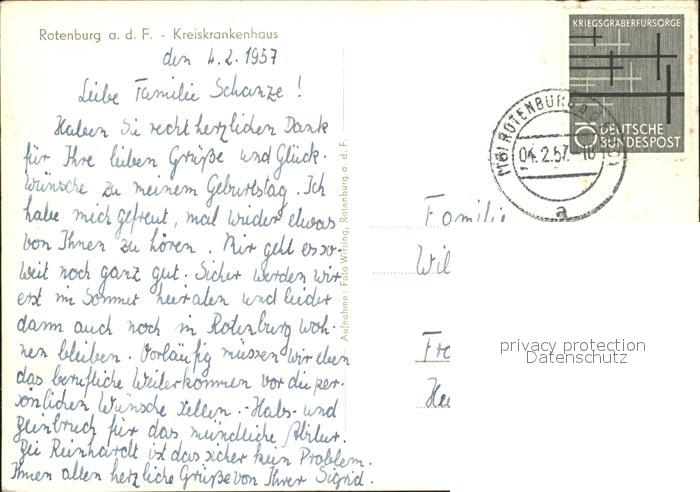 Rotenburg a. d. F. - Kreiskrankenhaus
den 4.2.1957
Liebe Familie Schanze!
Haben Sie recht herzlichen Dank
für Ihre lieben Grüße und Glück-
wünsche zu meinem Geburtstag. Ich
habe mich gefreut, mal wieder etwas
von Ihnen zu hören. Mir geht es so-
weit noch ganz gut. Sicher werden wir
erst im Sommer heiraten und leider
dann auch noch in Rotenburg woh-
nen bleiben. Vorläufig müssen wir eben
das berufliche Weiterkommen vor die per-
sönlichen Wünsche stellen. - Hals- und
Beinbruch für das mündliche Abitur.
Bei Reinhardt ist das sicher kein Problem.
Ihnen allen herzliche Grüße von Ihrer Sigrid.
Aufnahme: Foto Wirsing, Rotenburg a. d. F.
KRIEGSGRÄBERFÜRSORGE
10
DEUTSCHE
BUNDESPOST
(16) ROTENBURG
04.2.57.-16
a
Familie
Wil
Fr
privacy protection
Datenschutz